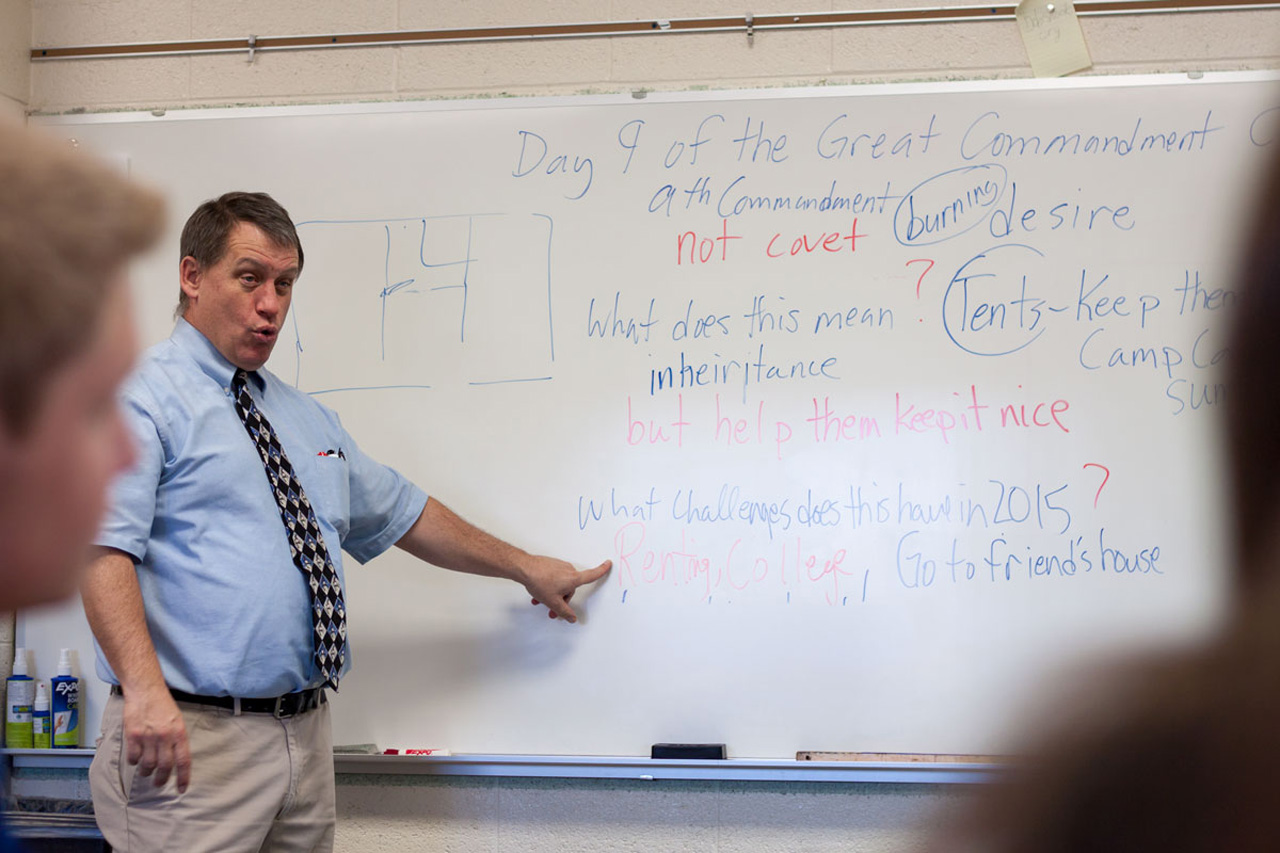 Day 9 of the Great Commandment
9th Commandment burning desire
not covet
What does this mean ?
inheiritance
Tents - Keep
Camp
but help them keep it nice
What Challenges does this have in 2015 ?
Renting, College, Go to friend's house
EXPO
EXPO